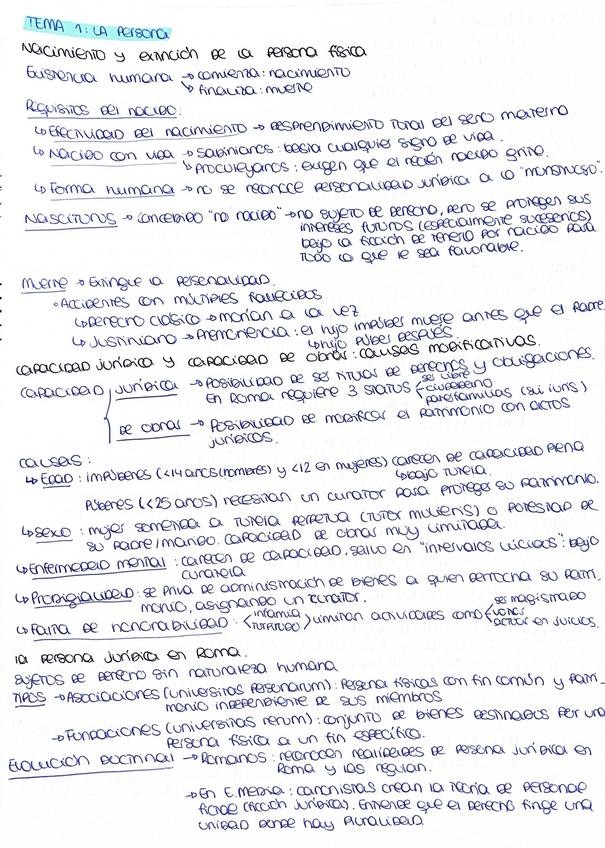 TEMA 1: LA PERSONA
NACIMIENTO Y EXTINCIÓN DE LA PERSONA FÍSICA
EXISTENCIA HUMANA → COMIENZA: NACIMIENTO
↳ FINALIZA: MUERTE
REQUISITOS DEL NACIDO:
↳ EFECTIVIDAD DEL NACIMIENTO → DESPRENDIMIENTO TOTAL DEL SENO MATERNO
↳ NACIDO CON VIDA → SABINIANOS: BASTA CUALQUIER SIGNO DE VIDA.
↳ PROCULEYANOS: EXIGEN QUE EL RECIÉN NACIDO GRITE.
↳ FORMA HUMANA → NO SE RECONOCE PERSONALIDAD JURÍDICA A LO "MONSTRUOSO".
NASCITURUS → CONCEBIDO "NO NACIDO" → NO SUJETO DE DERECHO, PERO SE PROTEGEN SUS
INTERESES FUTUROS (ESPECIALMENTE SUCESORIOS)
BAJO LA FICCIÓN DE TENERLO POR NACIDO PARA
TODO LO QUE LE SEA FAVORABLE.
MUERTE → EXTINGUE LA PERSONALIDAD.
• ACCIDENTES CON MÚLTIPLES FALLECIDOS
↳ DERECHO CLÁSICO → MORÍAN A LA VEZ
↳ JUSTINIANO → PREMORIENCIA: EL HIJO IMPÚBER MUERE ANTES QUE EL PADRE
↳ HIJO PÚBER DESPUÉS.
CAPACIDAD JURÍDICA Y CAPACIDAD DE OBRAR: CAUSAS MODIFICATIVAS.
CAPACIDAD JURÍDICA → POSIBILIDAD DE SER TITULAR DE DERECHOS Y OBLIGACIONES.
EN ROMA REQUIERE 3 STATUS SER LIBRE
CIUDADANO
PATERFAMILIAS (SUI IURIS)
DE OBRAR → POSIBILIDAD DE MODIFICAR EL PATRIMONIO CON ACTOS
JURÍDICOS.
CAUSAS:
↳ EDAD: IMPÚBERES (<14 AÑOS (HOMBRES) Y <12 EN MUJERES) CARECEN DE CAPACIDAD PLENA
↳ BAJO TUTELA.
PÚBERES (<25 AÑOS) NECESITAN UN CURATOR PARA PROTEGER SU PATRIMONIO.
↳ SEXO: MUJER SOMETIDA A TUTELA PERPETUA (TUTOR MULIERIS) O POTESTAD DE
SU PADRE/MARIDO. CAPACIDAD DE OBRAR MUY LIMITADA.
↳ ENFERMEDAD MENTAL: CARECEN DE CAPACIDAD, SALVO EN "INTERVALOS LÚCIDOS": BAJO
CURATELA
↳ PRODIGALIDAD: SE PRIVA DE ADMINISTRACIÓN DE BIENES A QUIEN DERROCHA SU PATRI_
MONIO, ASIGNANDO UN CURATOR.
↳ FALTA DE HONORABILIDAD: INFAMIA
TURPITUDO LIMITAN ACTIVIDADES COMO SER MAGISTRADO
VOTAR
ACTUAR EN JUICIOS.
LA PERSONA JURÍDICA EN ROMA.
SUJETOS DE DERECHO SIN NATURALEZA HUMANA
TIPOS → ASOCIACIONES (UNIVERSITAS PERSONARUM): PERSONA FÍSICAS CON FIN COMÚN Y PATRI_
MONIO INDEPENDIENTE DE SUS MIEMBROS
→ FUNDACIONES (UNIVERSITAS RERUM): CONJUNTO DE BIENES DESTINADOS POR UNA
PERSONA FÍSICA A UN FIN ESPECÍFICO.
EVOLUCIÓN DOCTRINAL → ROMANOS: RECONOCEN REALIDADES DE PERSONA JURÍDICA EN
ROMA Y LAS REGULAN.
→ EN E. MEDIA: CANONISTAS CREAN LA TEORÍA DE PERSONAE
FICTAE (FICCIÓN JURÍDICA). ENTIENDE QUE EL DERECHO FINGE UNA
UNIDAD DONDE HAY PLURALIDAD.